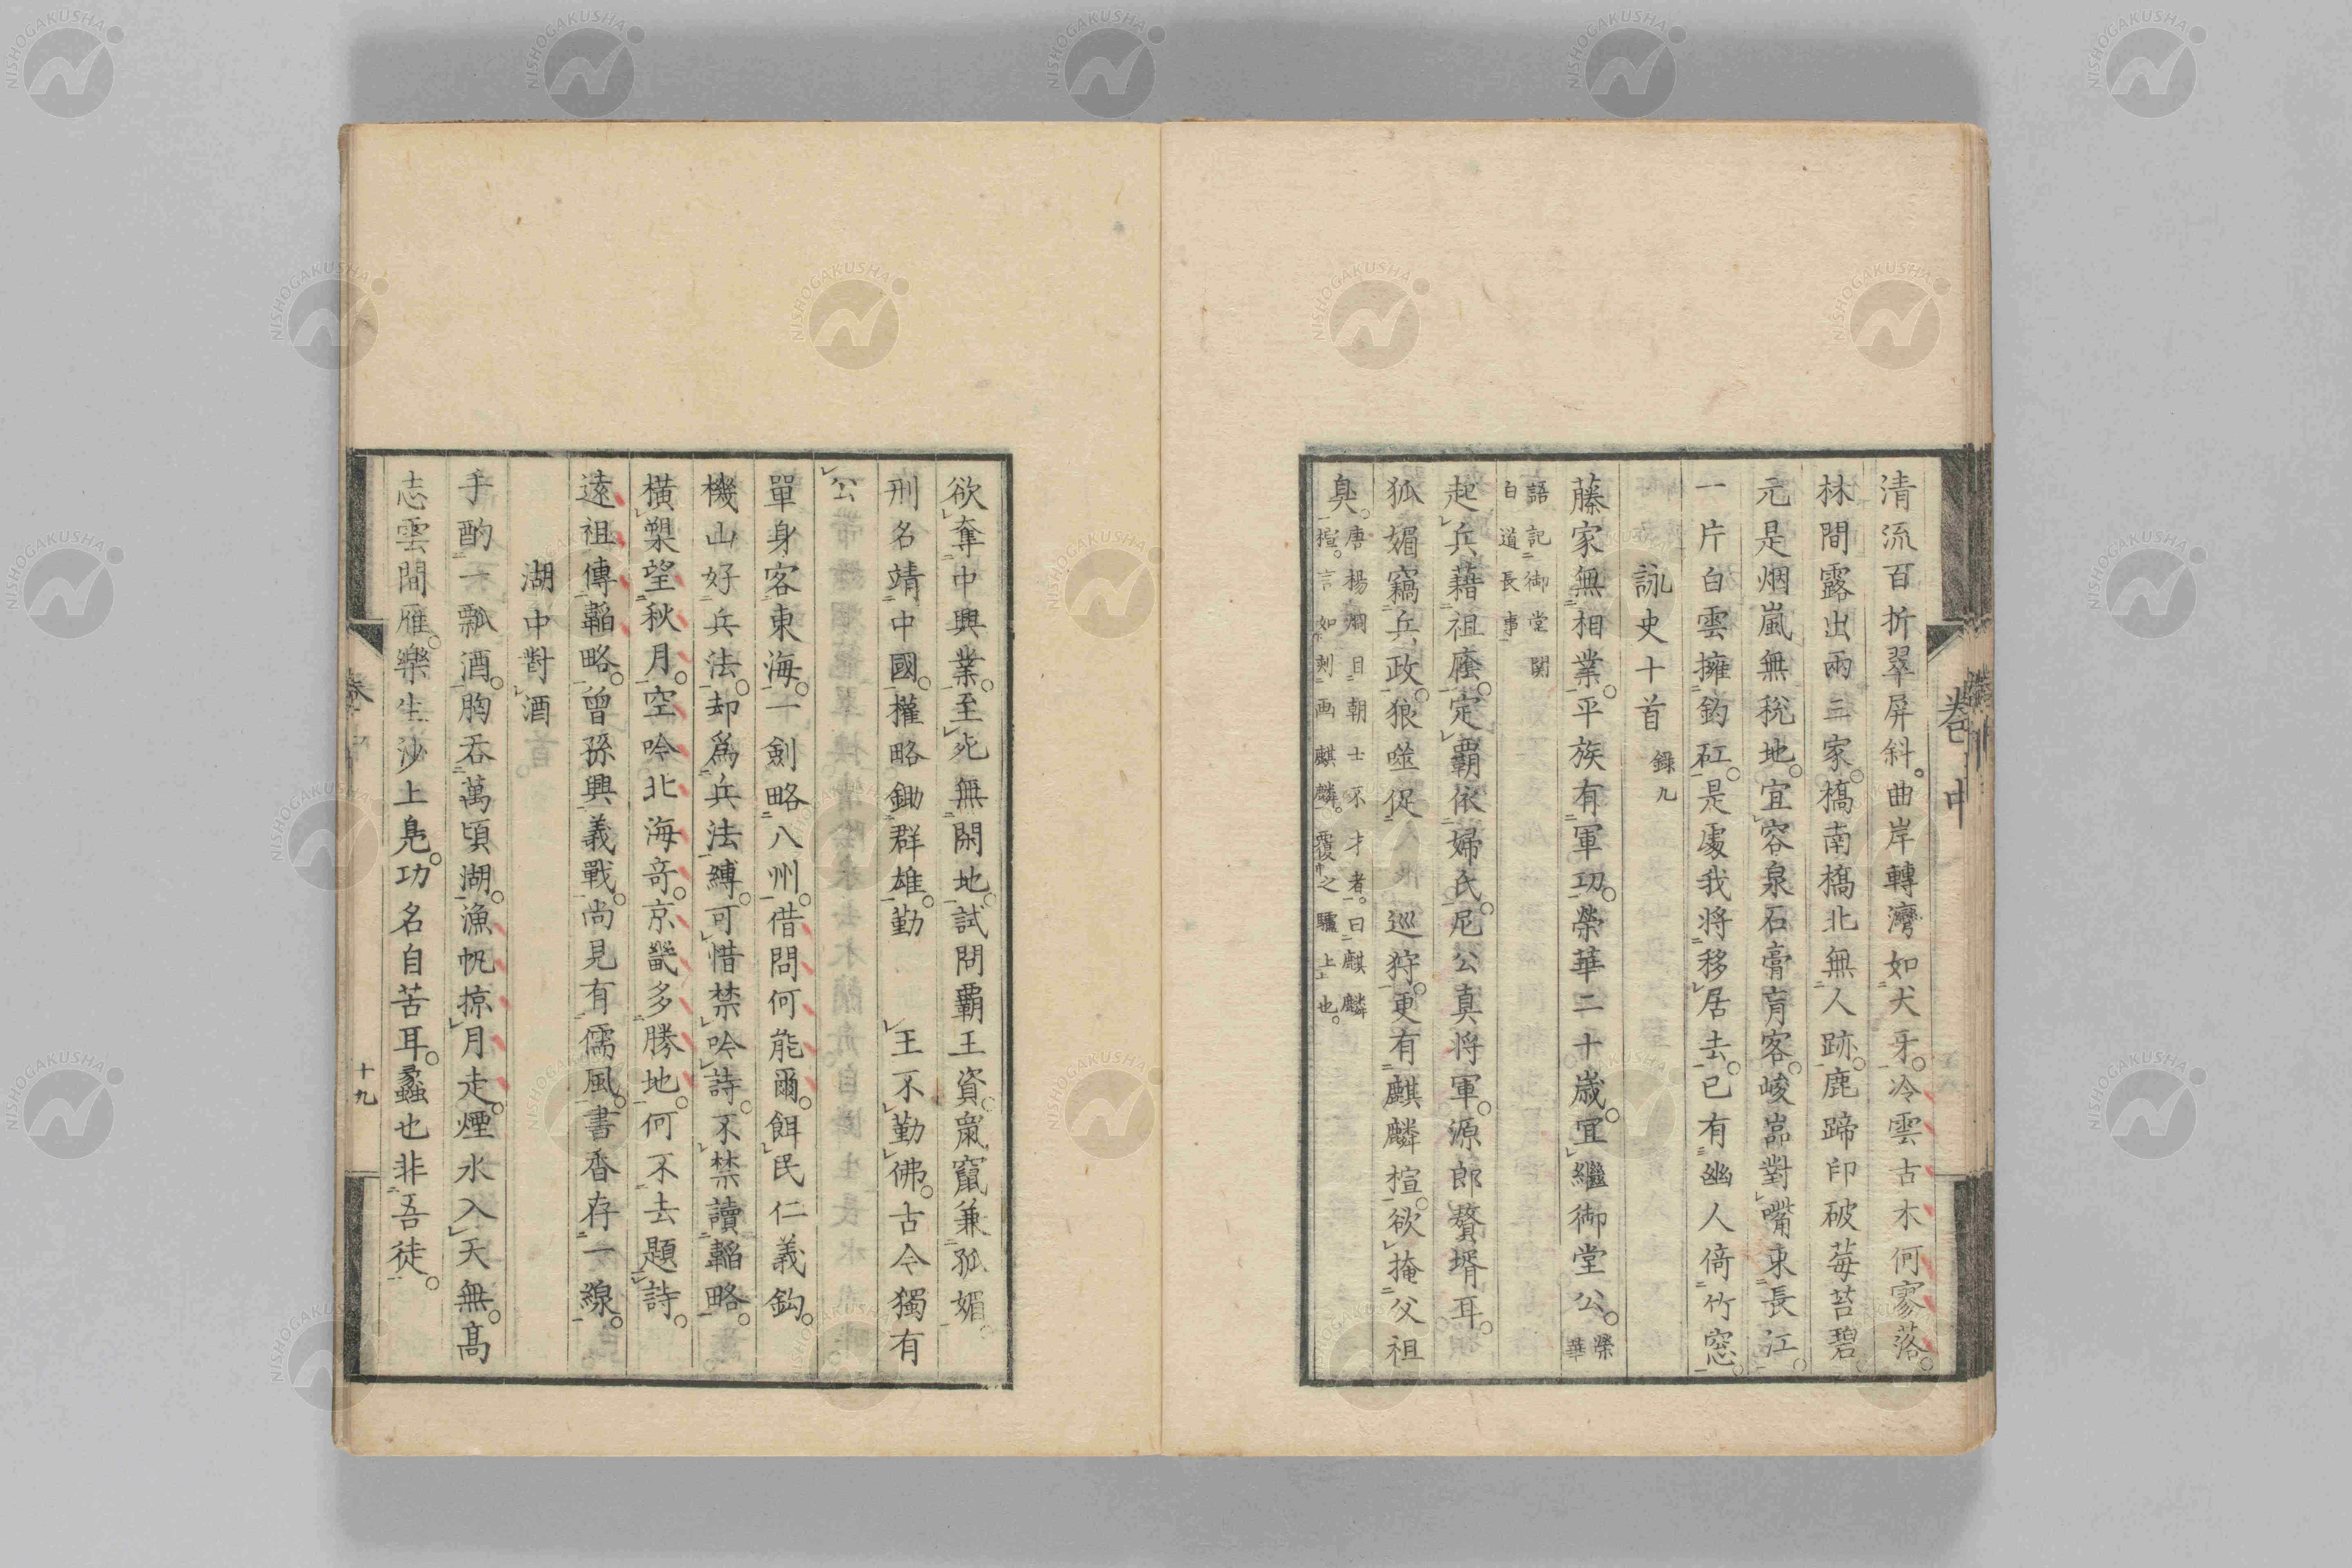 清流百折翠屏斜曲岸轉灣如犬牙冷雲古木何寥落
林間露出兩三家橋南橋北無人跡鹿蹄印破莓苔碧
元是烟嵐無稅地宜容泉石膏肓客峻嵓對嘴束長江
一片白雲擁釣矼是處我將移居去已有幽人倚竹窓
詠史十首 錄九
藤家無相業平族有軍功榮華二十歲宜繼御堂公 榮華
語記御堂関
白道長事
起兵藉祖廕定覇依婦氏尼公真将軍源郎贅壻耳
狐媚竊兵政狼噬促巡狩更有麒麟楦欲掩父祖
臭 唐楊烱目朝士不才者曰麒麟
楦言如刻画麒麟覆之驢上也
卷中
欲奪中興業至死無閑地試問覇王資鼠竄兼狐媚
刑名靖中國權略鋤群雄勤王不勤佛古今獨有
公
單身客東海一劍略八州借問何能爾餌民仁義鈎
機山好兵法却為兵法縛可惜禁吟詩不禁讀韜略
橫槊望秋月空吟北海竒京畿多勝地何不去題詩
遠祖傳韜略曾孫興義戰尚見有儒風書香存一線
湖中對酒
手酌一瓢酒胸吞萬頃湖漁帆掠月走煙水入天無高
志雲間雁樂生沙上鳬功名自苦耳蠡也非吾徒
十九
NISHOGAKUSHA